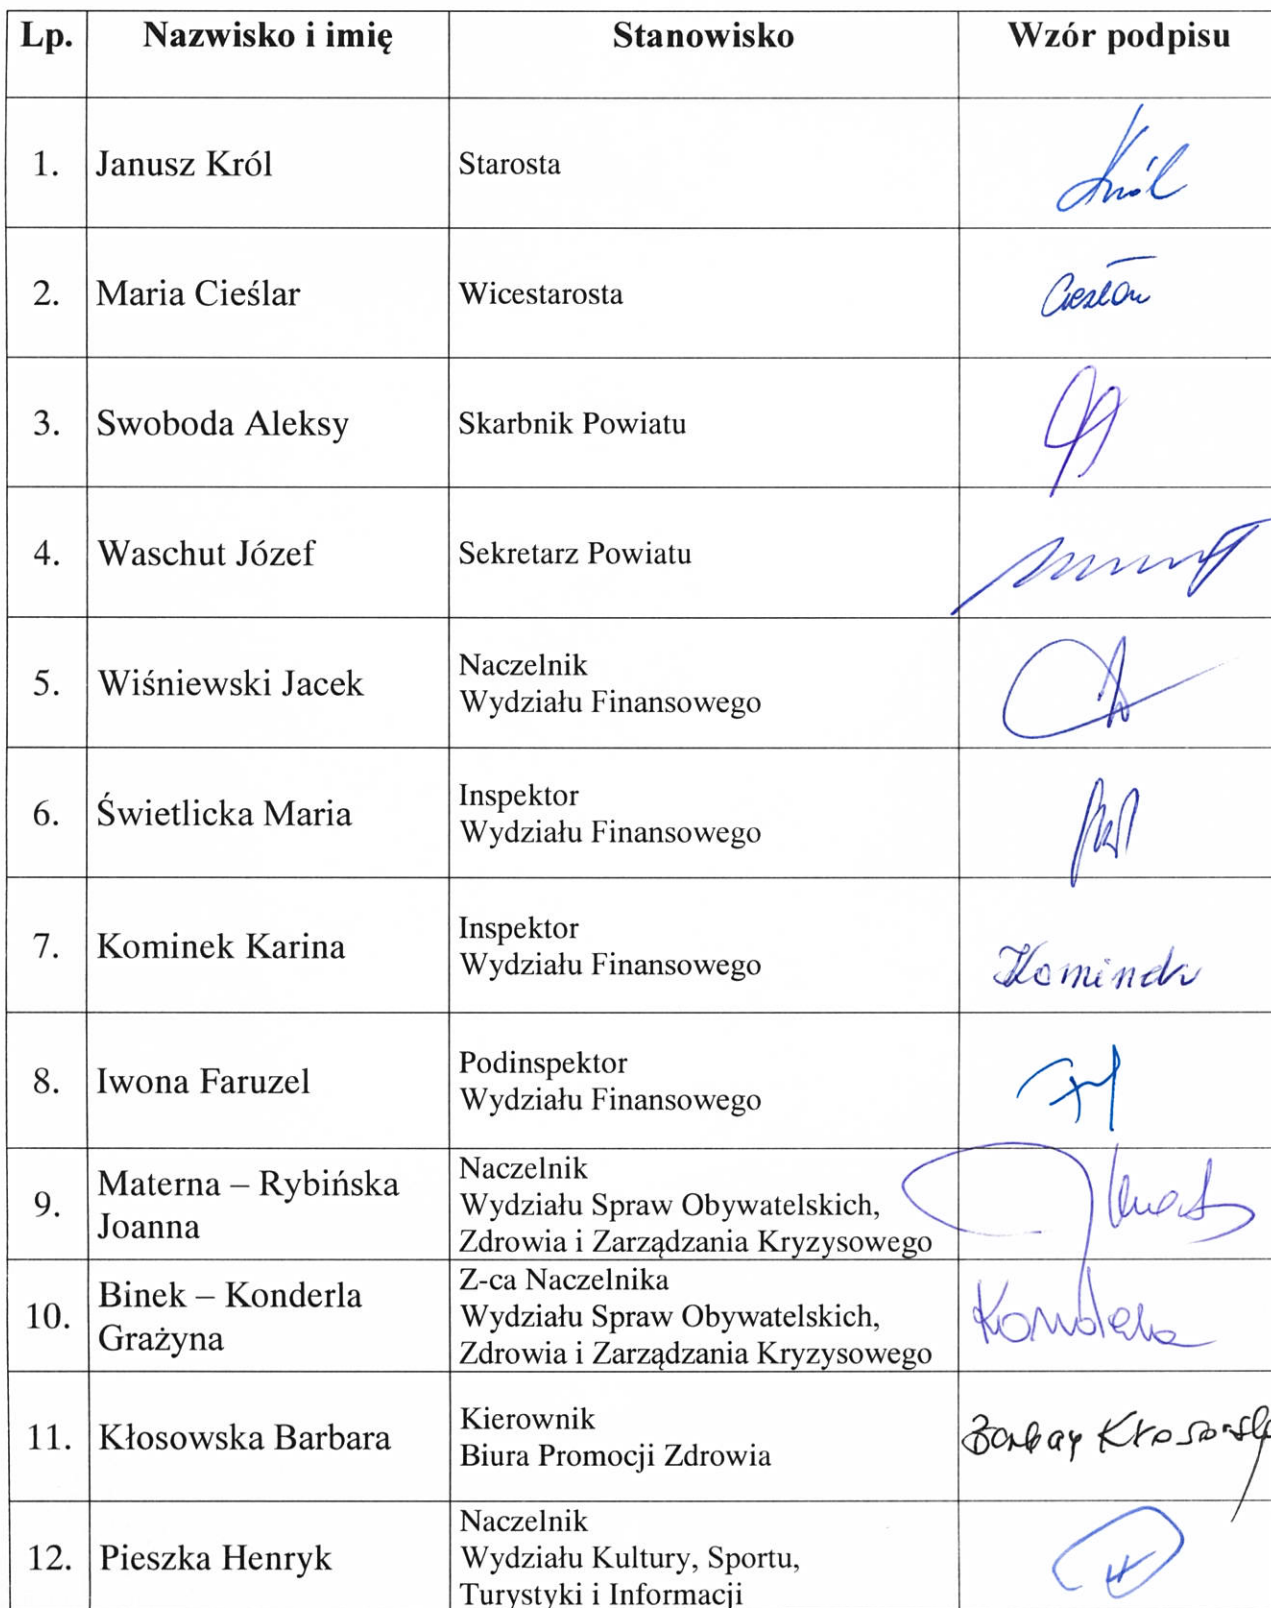 Lp. Nazwisko i imię Stanowisko Wzór podpisu
1. Janusz Król Starosta Król
2. Maria Cieślar Wicestarosta
3. Swoboda Aleksy Skarbnik Powiatu
4. Waschut Józef Sekretarz Powiatu
5. Wiśniewski Jacek Naczelnik
Wydziału Finansowego
6. Świetlicka Maria Inspektor
Wydziału Finansowego
7. Kominek Karina Inspektor
Wydziału Finansowego Kominek
8. Iwona Faruzel Podinspektor
Wydziału Finansowego
9. Materna – Rybińska
Joanna
Naczelnik
Wydziału Spraw Obywatelskich,
Zdrowia i Zarządzania Kryzysowego
10. Binek – Konderla
Grażyna
Z-ca Naczelnika
Wydziału Spraw Obywatelskich,
Zdrowia i Zarządzania Kryzysowego
Konderla
11. Kłosowska Barbara Kierownik
Biura Promocji Zdrowia
12. Pieszka Henryk Naczelnik
Wydziału Kultury, Sportu,
Turystyki i Informacji